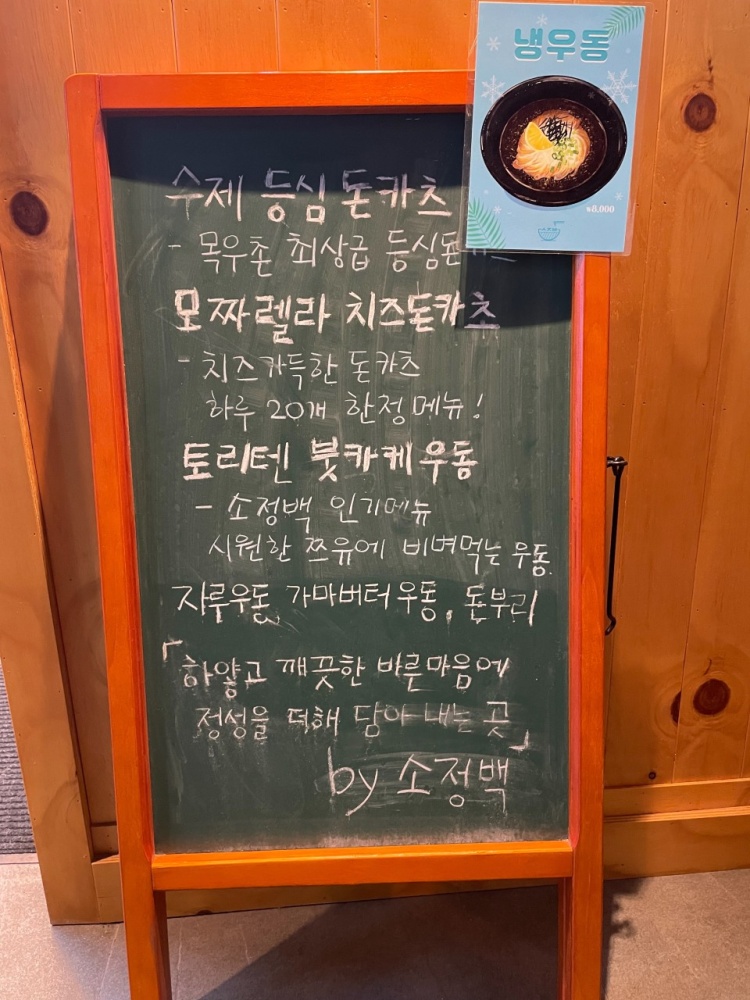 냉우동
₩8,000
수제 등심 돈카츠
- 목우촌 최상급 등심돈
모짜렐라 치즈돈카츠
- 치즈가득한 돈카츠
하루 20개 한정메뉴!
토리텐 붓카케우동
- 소정백 인기메뉴
시원한 쯔유에 비벼먹는 우동.
자루우동, 가마버터우동, 돈부리
「하얗고 깨끗한 바른마음에
정성을 더해 담아 내는 곳」
by 소정백